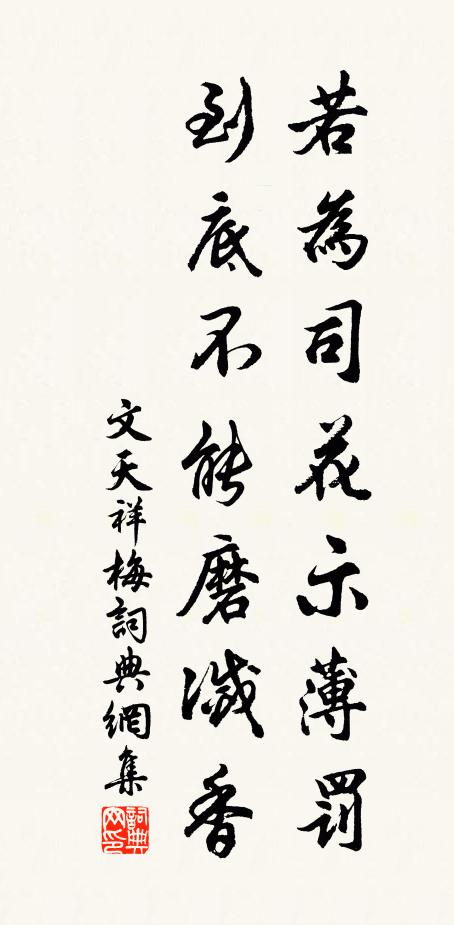 若為司花示薄罰
到底不能磨滅香
文天祥梅詞典網集
詞典網印